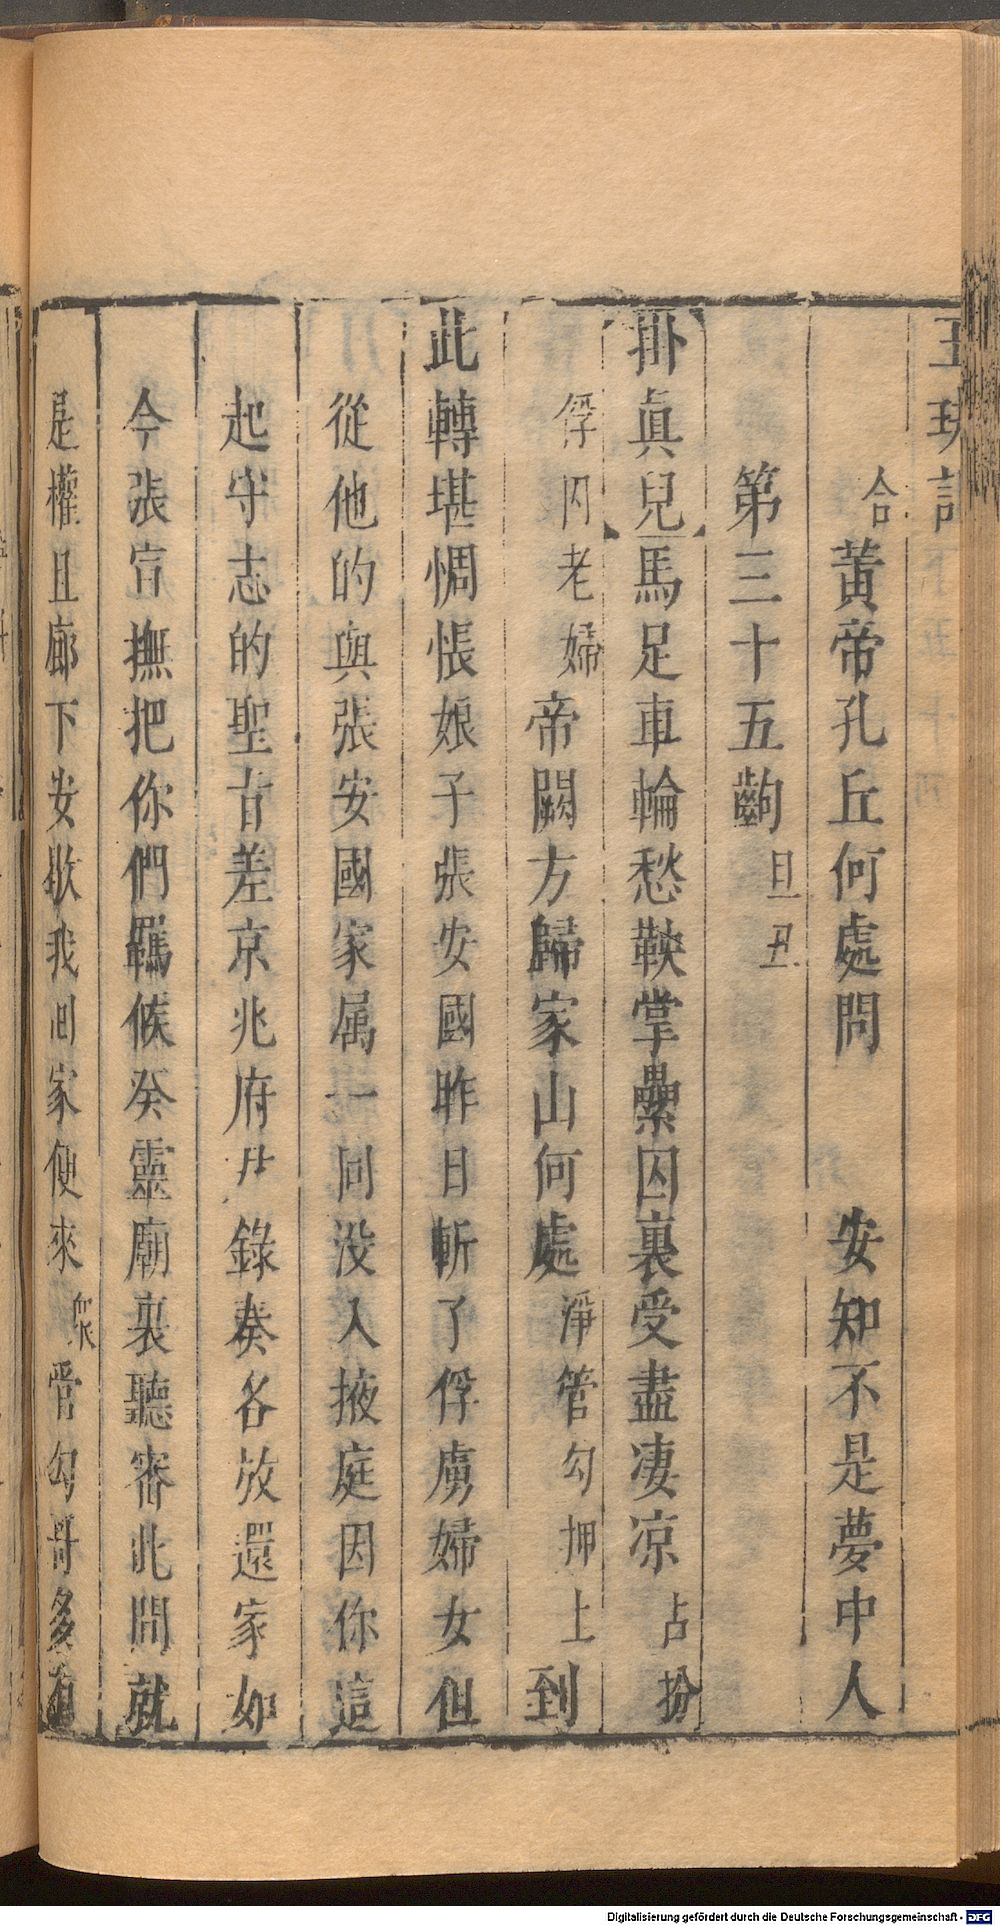 合黃帝孔丘何處問　安知不是夢中人
第三十五齣旦丑
掛眞兒馬足車輪愁鞅掌纍囚裏受盡凄凉占扮
俘囚老婦帝闕方歸家山何處淨管勾押上到
此轉堪惆悵娘子張安國昨日斬了俘虜婦女但
從他的與張安國家属一同没入掖庭因你這
起守志的聖旨差京兆府錄奏各放還家如
今張宣撫把你們羈候癸靈廟裏聽審此間就
是權且廊下安歇我回家便來衆管勾哥多有
Digitalisierung gefördert durch die Deutsche Forschungsgemeinschaft - DFG